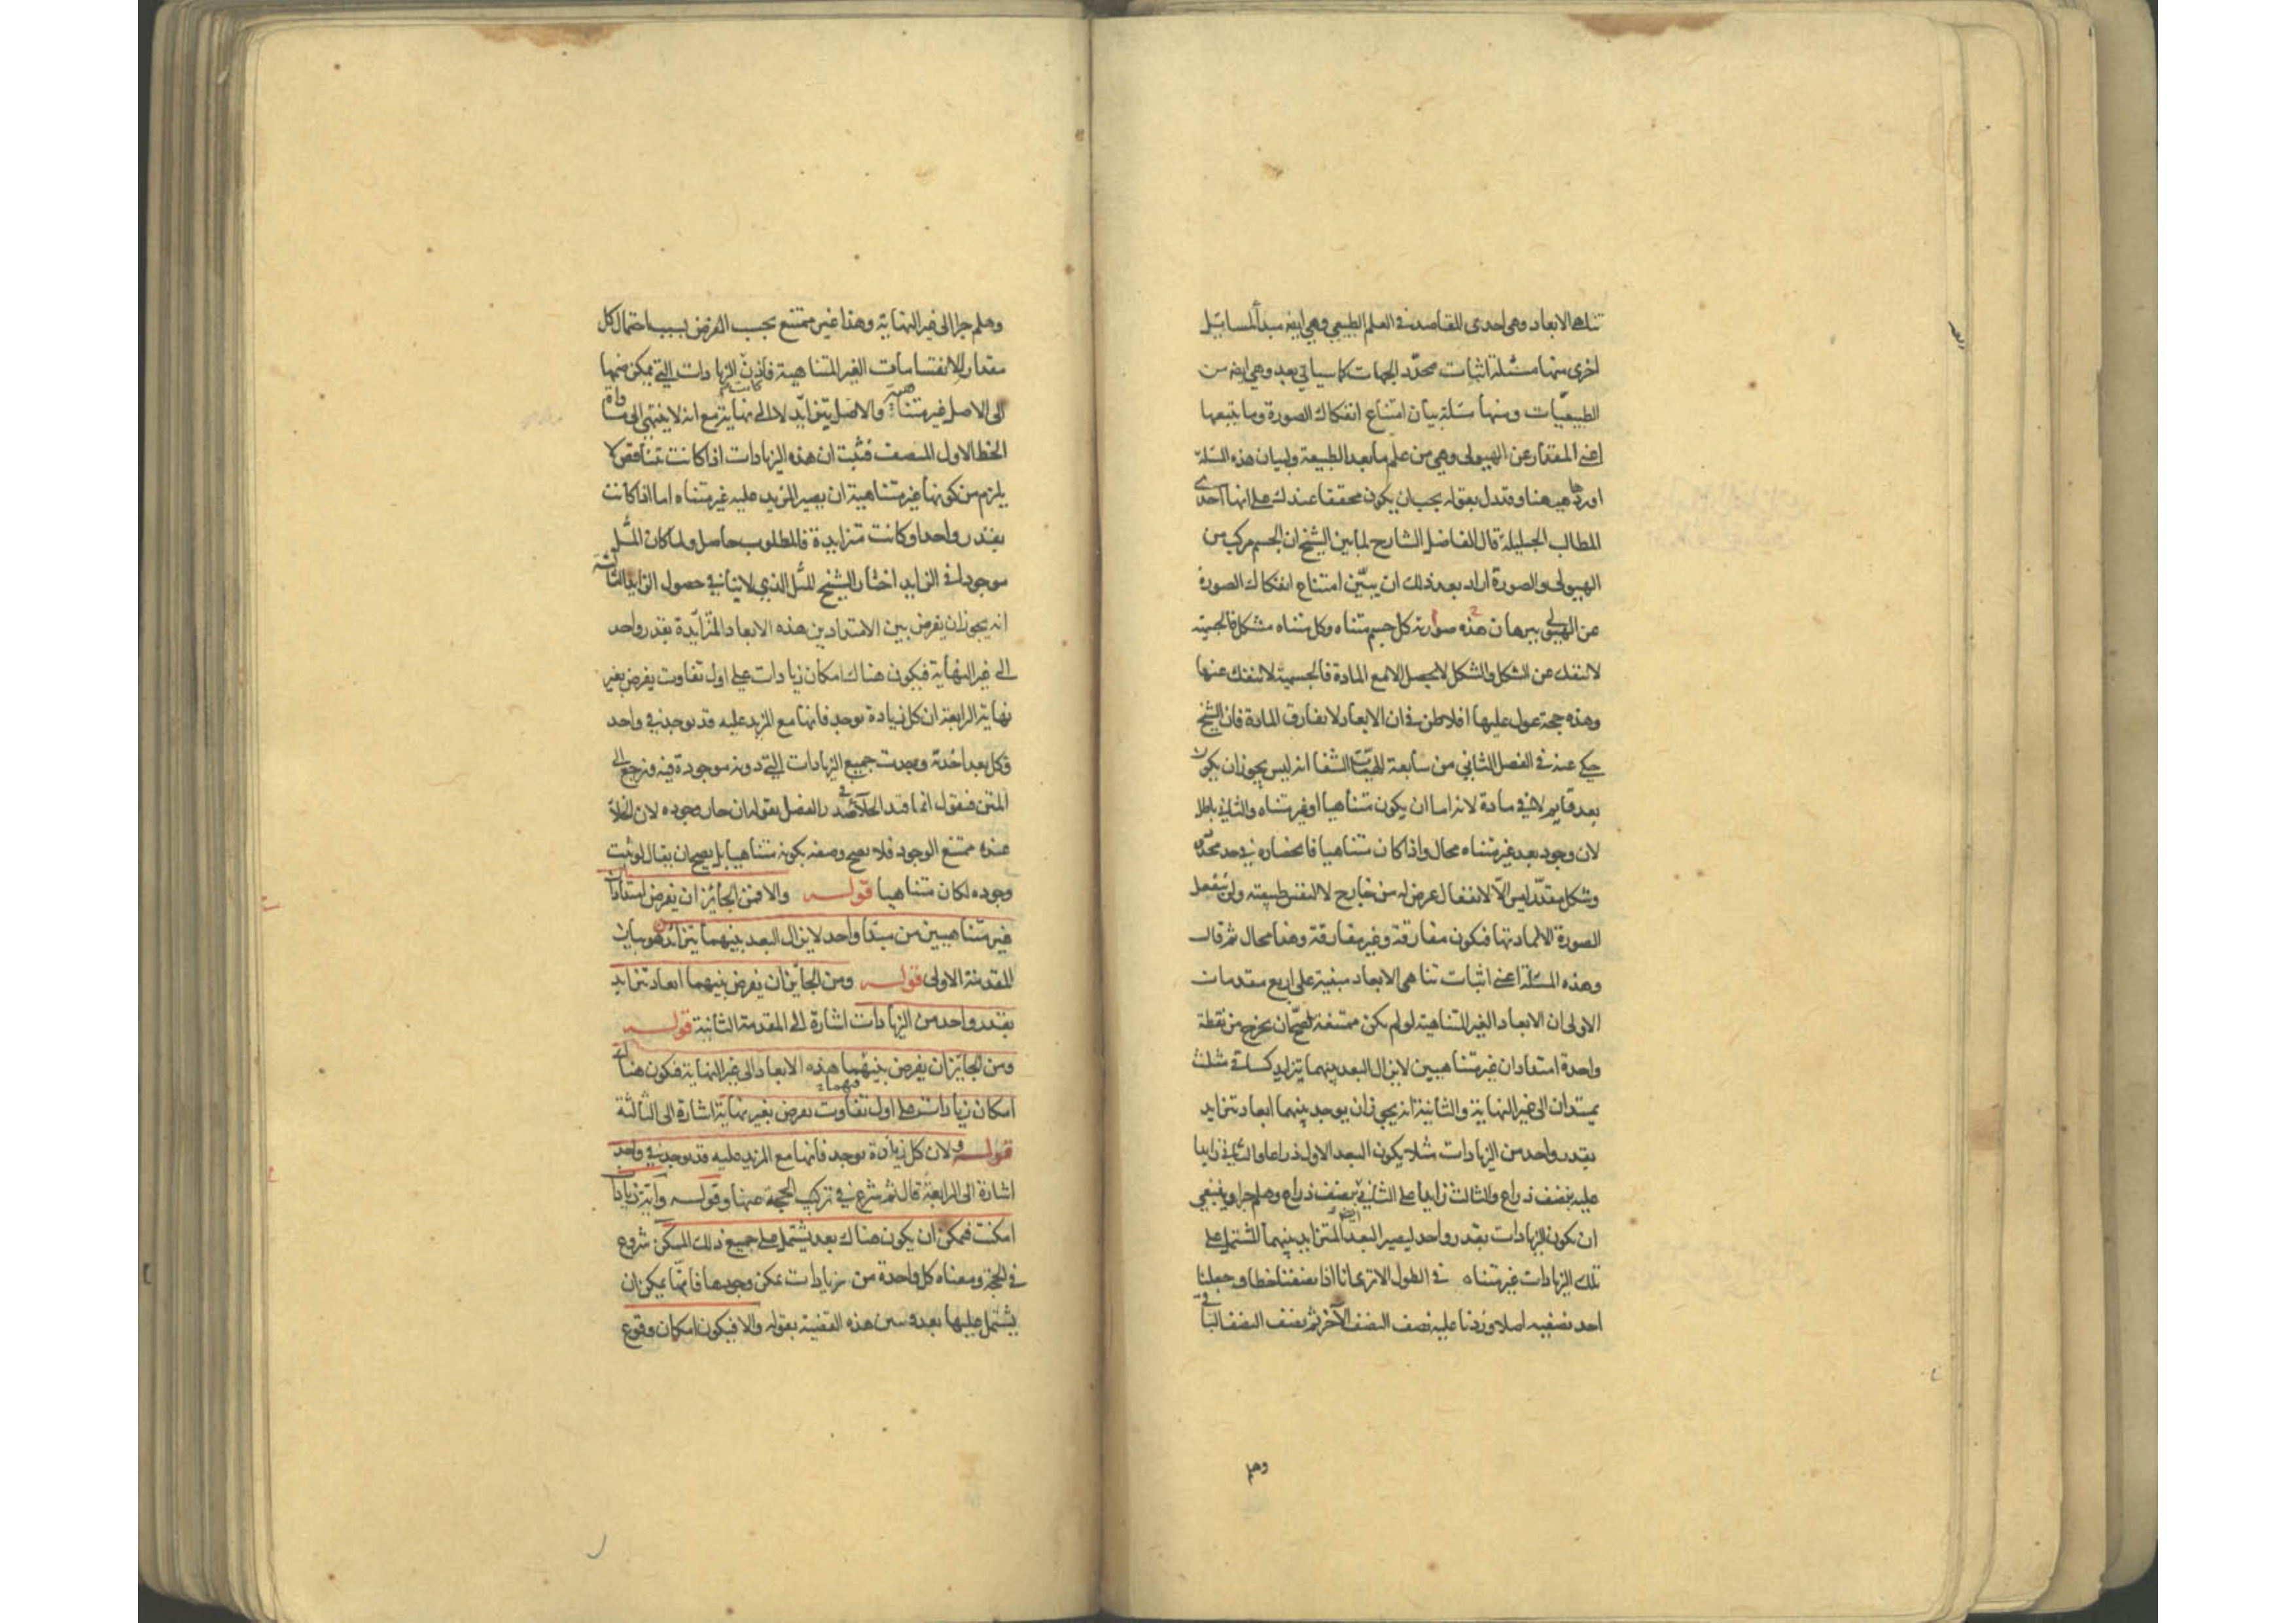 تناهى الابعاد وهى احدى المقاصد فى العلم الطبيعى وهى ايضا مبدأ لمسائل
اخرى منها مسئلة اثبات محدد الجهات كما سياتى بعد وهى ايضا من
الطبيعيات ومنها مسئلة بيان امتناع انفكاك الصورة وما يتبعها
اعنى المقدار عن الهيولى وهى من علم ما بعد الطبيعة ولبيان هذه المسئلة
اوردها ههنا وقد دل بقوله يجب ان يكون محققا عندك على انها احدى
المطالب الجليلة قال الفاضل الشارح لما بين الشيخ ان الجسم مركب من
الهيولى والصورة اراد بعد ذلك ان يبين امتناع انفكاك الصورة
عن الهيولى ببرهان هذه صورته كل جسم متناه وكل متناه مشكل فالجسمية
لا تنفك عن الشكل والشكل لا يحصل الا مع المادة فالجسمية لا تنفك عنها
وهذه حجة عول عليها افلاطن فى ان الابعاد لا يفارق المادة فان الشيخ
حكى عنه فى الفصل الثانى من سابعة الهيات الشفا انه ليس يجوز ان يكون
بعد قايم لا فى مادة لانه اما ان يكون متناهيا او غير متناه والثانى باطل
لان وجود بعد غير متناه محال واذا كان متناهيا فانحصاره فى حد محدود
وشكل مقدر ليس الا لانفعال عرض له من خارج لا لنفس طبيعته ولن تنفعل
الصورة الا لمادتها فتكون مفارقة وغير مفارقة وهذا محال ثم قال
وهذه المسئلة اعنى اثبات تناهى الابعاد مبنية على اربع مقدمات
الاولى ان الابعاد الغير المتناهية لو لم يكن ممتنعة لصح ان يخرج من نقطة
واحدة امتدادان غير متناهيين لا يزال البعد بينهما يتزايد كساقى مثلث
يمتدان الى غير النهاية والثانية انه يجوز ان يوجد بينهما ابعاد تتزايد
بقدر واحد من الزيادات مثلا يكون البعد الاول ذراعا والثانى زايدا
عليه بنصف ذراع والثالث زايدا على الثانى بنصف ذراع وهلم جرا وينبغى
ان يكون الزيادات بقدر واحد ليصير البعد المتزايد بينهما المشتمل على
تلك الزيادات غير متناه فى الطول الا ترى انا اذا نصفنا خطا وجعلنا
احد نصفيه اصلا وزدنا عليه نصف النصف الآخر ثم نصف النصف الباقى
وهلم
وهلم جرا الى غير النهاية وهذا غير ممتنع بحسب الفرض بسبب احتمال كل
مقدار للانقسامات الغير المتناهية فاذن الزيادات التى يمكن ضمها
الى الاصل غير متناهية والاصل يتزايد لا الى نهاية مع انه لا ينتهى الى مساواة
الخط الاول المنصف فثبت ان هذه الزيادات اذا كانت تتناقص لا
يلزم من كونها غير متناهية ان يصير المزيد عليه غير متناه اما اذا كانت
بقدر واحد او كانت متزايدة فالمطلوب حاصل ولما كان المثل
موجودا فى الزايد اختار الشيخ المثل الذى لا ينافى حصول الزايد الثالثة
انه يجوز ان يفرض بين الامتدادين هذه الابعاد المتزايدة بقدر واحد
الى غير النهاية فيكون هناك امكان زيادات على اول تفاوت يفرض بغير
نهاية الرابعة ان كل زيادة توجد فانها مع المزيد عليه قد توجد فى واحد
فكل بعد اخذته وجدت جميع الزيادات التى دونه موجودة فيه ونرجع الى
المتن فنقول انما قيد الخلاء فى صدر الفصل بقوله ان جاز وجوده لان الخلاء
عنده ممتنع الوجود فلا يصح وصفه بكونه متناهيا بل يصح ان يقال لو ثبت
وجوده لكان متناهيا قوله والا فمن الجائز ان يفرض امتدادان
غير متناهيين من مبدأ واحد لا يزال البعد بينهما يتزايد هو بيان
المقدمة الاولى قوله ومن الجائز ان يفرض بينهما ابعاد تتزايد
بقدر واحد من الزيادات اشارة الى المقدمة الثانية قوله
ومن الجائز ان يفرض بينهما هذه الابعاد الى غير النهاية فيكون هناك
امكان زيادات على اول تفاوت يفرض بغير نهاية اشارة الى الثالثة
قوله ولان كل زيادة توجد فانها مع المزيد عليه قد توجد فى واحد
اشارة الى الرابعة قال ثم شرع فى تركيب الحجة عنها وقوله واية زيادات
امكنت فممكن ان يكون هناك بعد يشتمل على جميع ذلك الممكن شروع
فى الحجة ومعناه كل واحدة من زيادات يمكن وجودها فانما يمكن ان
يشتمل عليها بعد وبين هذه القضية بقوله والا فيكون امكان وقوع